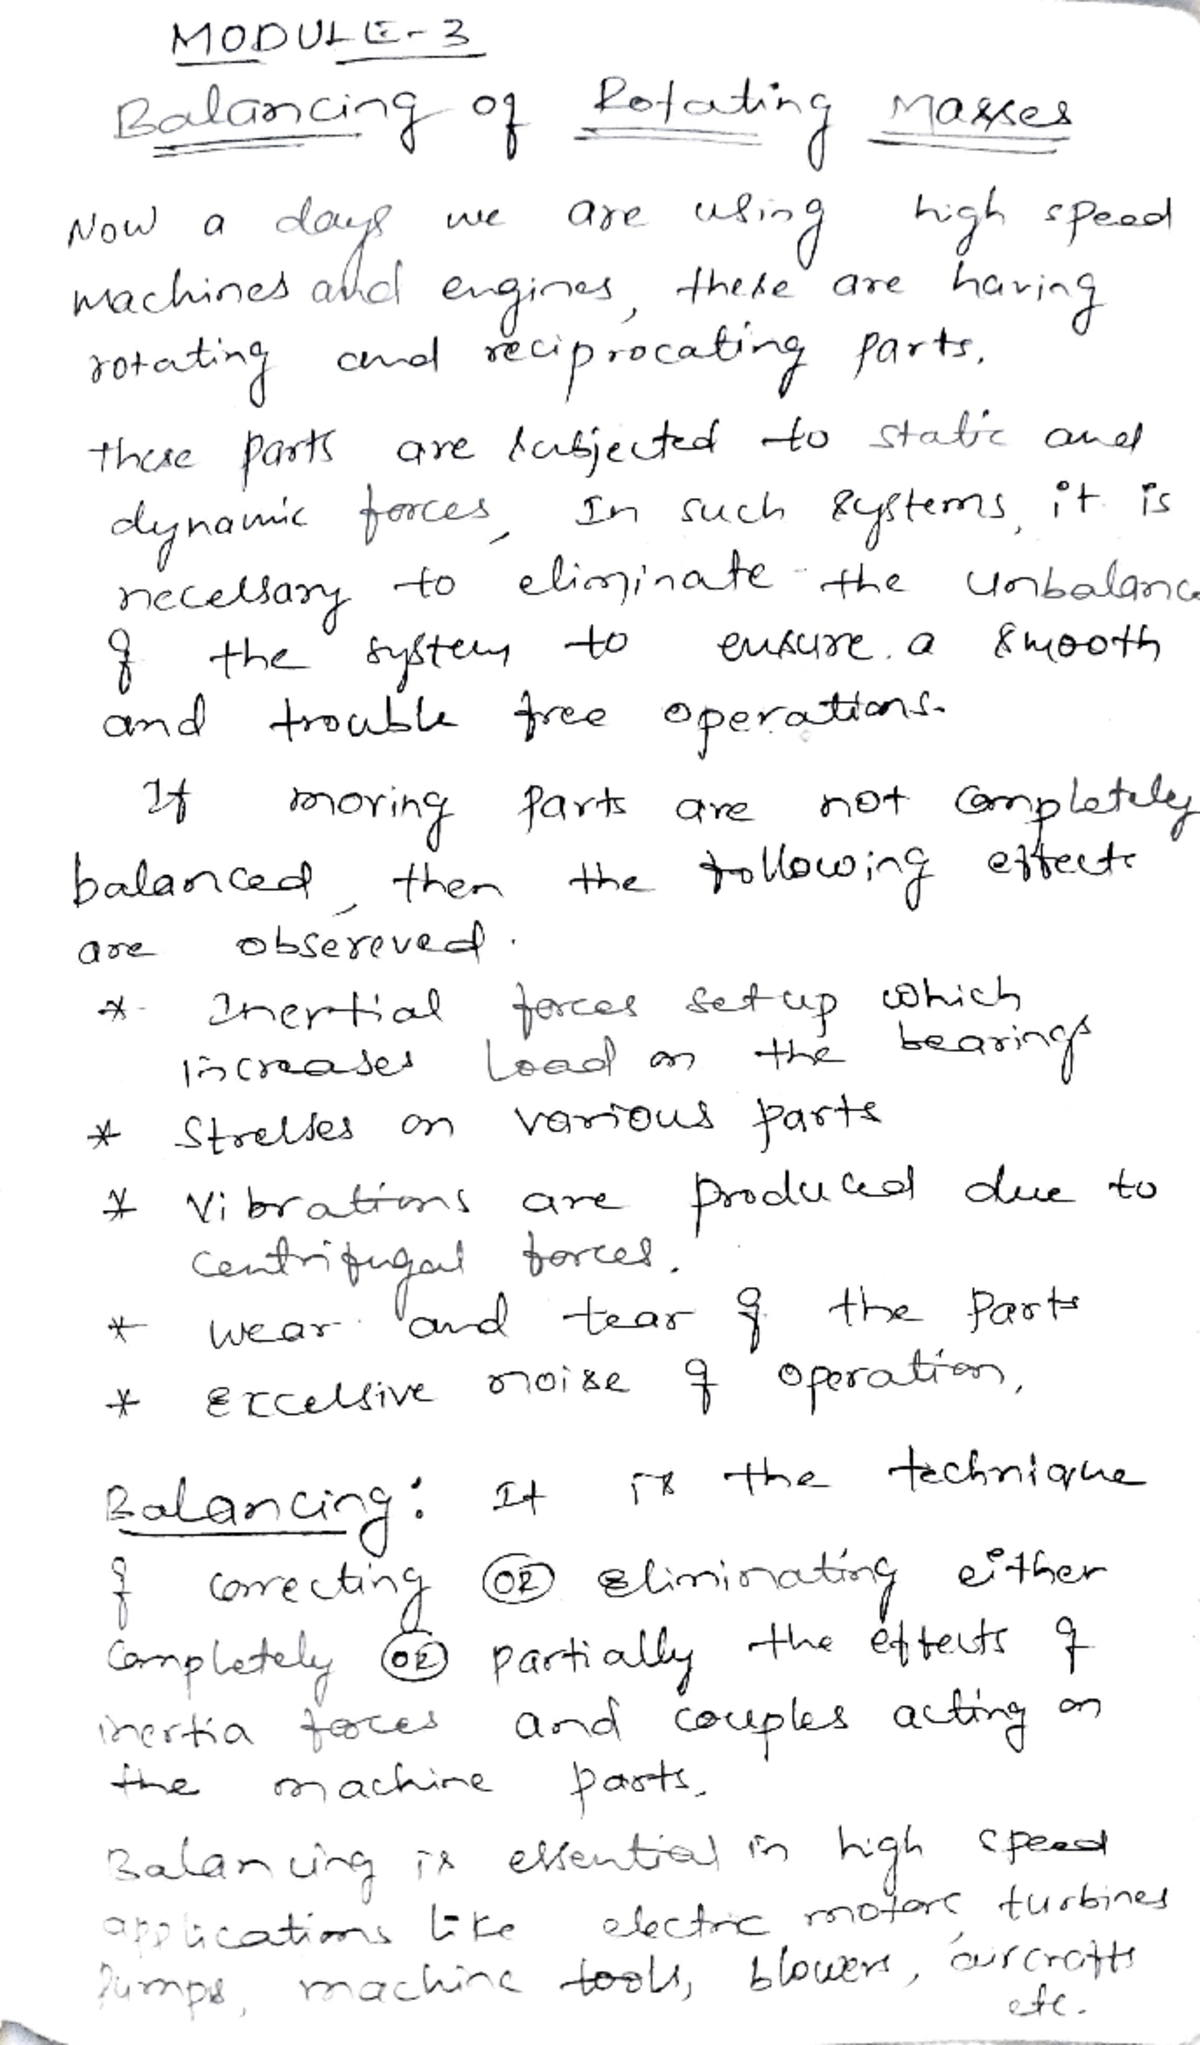 MODULE-3
Balancing of Rotating Masses
Now a days we are using high speed
machines and engines, these are having
rotating and reciprocating parts.
these parts are subjected to static and
dynamic forces, In such systems, it is
necessary to eliminate the unbalance
of the system to ensure a smooth
and trouble free operations.
If moving parts are not completely
balanced, then the following effects
are obsereved.
* Inertial forces set up which
increases load on the bearings
* Stresses on various parts
* Vibrations are produced due to
centrifugal forces.
* wear and tear of the parts
* Excessive noise of operation,
Balancing: It is the technique
of correcting OR eliminating either
completely OR partially the effects of
inertia foces and couples acting on
the machine parts.
Balancing is essential in high speed
applications like electric motors, turbines
Pumps, machine tools, blowers, aircrafts
etc.